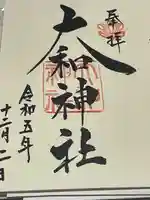 奉拝
大和神社
令和五年
十二月二日